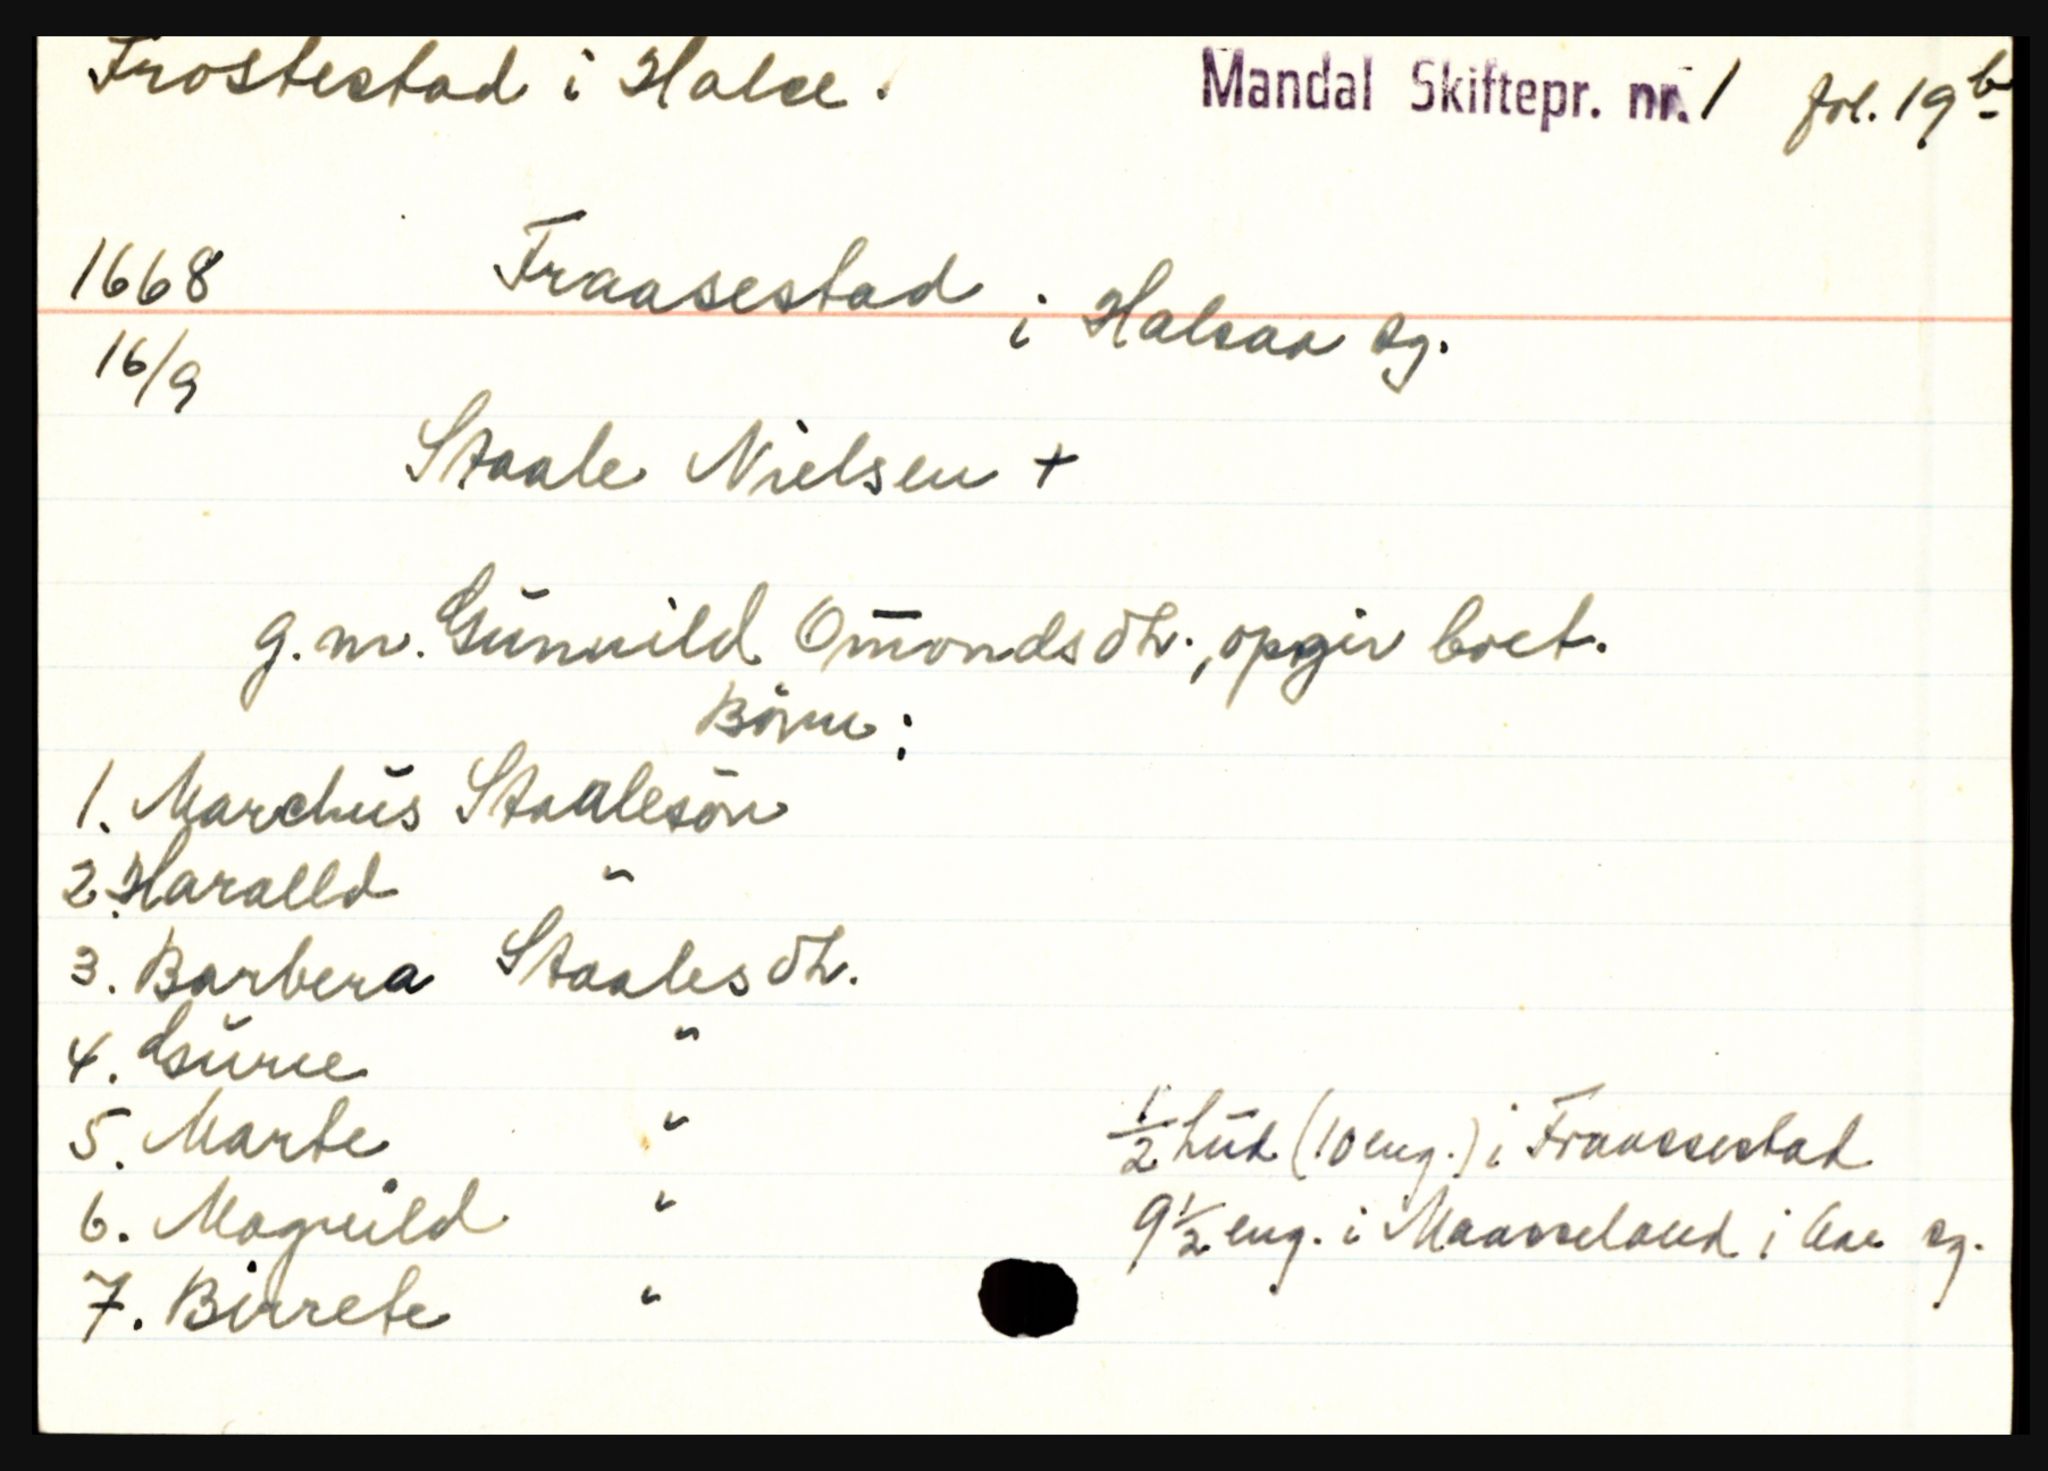 Frostestad i Halse. Mandal Skiftepr. nr. 1 fol. 19b
1668 Fraasestad i Halsaa sg.
16/9
Staale Nielsen +
g.m. Gunnild Omondsdtr., opgir boet.
Börn:
1. Marchus Staalesön
2. Haralld "
3. Barbera Staalesdtr.
4. Gurie "
5. Marte " ½ hud (10 eng.) i Fraassestad
6. Magnild " 9½ eng. i Maasseland i Aae sg.
7. Birrete "